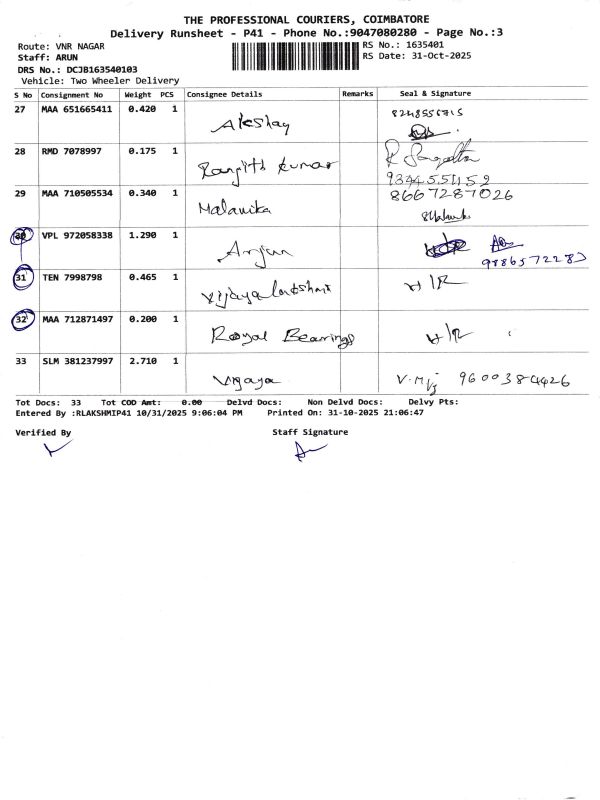 THE PROFESSIONAL COURIERS, COIMBATORE
Delivery Runsheet - P41 - Phone No.:9047080280 - Page No.:3
Route: VNR NAGAR
RS No.: 1635401
Staff: ARUN
RS Date: 31-Oct-2025
DRS No.: DCJB163540103
Vehicle: Two Wheeler Delivery
S No Consignment No Weight PCS Consignee Details Remarks Seal & Signature
27 MAA 651665411 0.420 1 Akshay
28 RMD 7078997 0.175 1 Ranjith Kumar
29 MAA 710505534 0.340 1 Malavika 8667287026
30 VPL 972058338 1.290 1 Arjun
31 TEN 7998798 0.465 1 Vijaya Lakshmi H/R
32 MAA 712871497 0.200 1 Royal Bearings H/R
33 SLM 381237997 2.710 1 Vijaya 9600384426
Tot Docs: 33 Tot COD Amt: 0.00 Delvd Docs: Non Delvd Docs: Delvy Pts:
Entered By :RLAKSHMIP41 10/31/2025 9:06:04 PM Printed On: 31-10-2025 21:06:47
Verified By Staff Signature